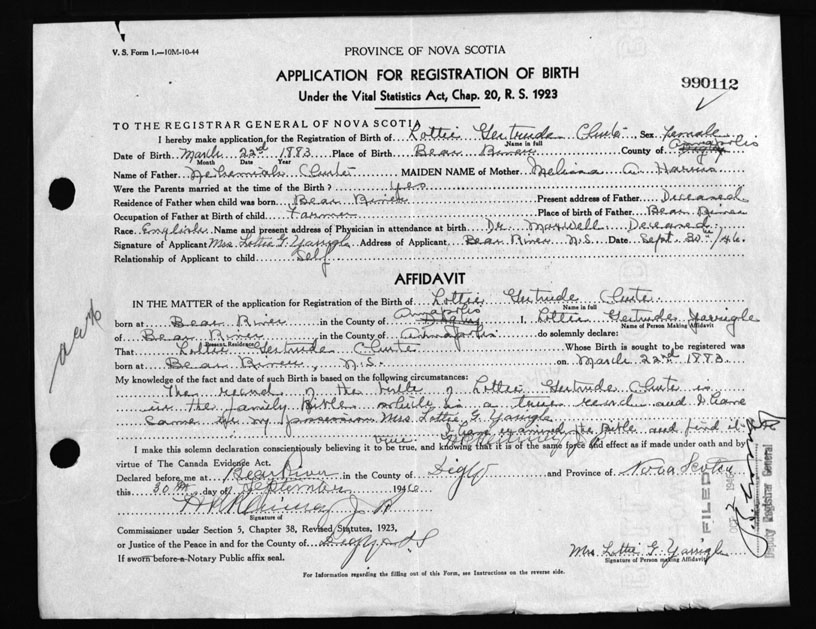 V. S. Form 1.—10M-10-44
PROVINCE OF NOVA SCOTIA
APPLICATION FOR REGISTRATION OF BIRTH
Under the Vital Statistics Act, Chap. 20, R. S. 1923
990112
TO THE REGISTRAR GENERAL OF NOVA SCOTIA
I hereby make application for the Registration of Birth of Lottie Gertrude Clute, Sex Female
Name in full
Annapolis
Date of Birth March 22nd 1883 Place of Birth Bear River County of
Month Day Year
Name of Father Nehemiah Clute MAIDEN NAME of Mother Melissa A. Harris
Were the Parents married at the time of the Birth? yes
Residence of Father when child was born Bear River Present address of Father Deceased
Occupation of Father at Birth of child Farmer Place of Birth of Father Bear River
Race English Name and present address of Physician in attendance at birth Dr. Deceased
Signature of Applicant Mrs. Lottie G. Address of Applicant Bear River N.S. Date Sept. 30th/46.
Relationship of Applicant to child Self
AFFIDAVIT
IN THE MATTER of the application for Registration of the Birth of Lottie Gertrude Clute
Name in full
Annapolis
born at Bear River in the County of I, Lottie Gertrude
Name of Person Making Affidavit
of Bear River in the County of Annapolis do solemnly declare:
Present Residence
That Lottie Gertrude Clute Whose Birth is sought to be registered was
born at Bear River, N.S. on March 22nd 1883.
My knowledge of the fact and date of such Birth is based on the following circumstances:
The record of the birth of Lottie Gertrude Clute is
in the family Bible which is a true record and I have
same in my possession Mrs Lottie G.
I have examined the Bible and find it
true
I make this solemn declaration conscientiously believing it to be true, and knowing that it is of the same force and effect as if made under oath and by
virtue of The Canada Evidence Act.
Declared before me at Bear River in the County of Digby and Province of Nova Scotia
this 30th day of September 1946
Signature of
Commissioner under Section 5, Chapter 38, Revised Statutes, 1923,
or Justice of the Peace in and for the County of Digby N S
If sworn before a Notary Public affix seal.
Mrs. Lottie G.
Signature of Person making Affidavit
For Information regarding the filling out of this Form, see Instructions on the reverse side.
FILED
OCT 2 1946
Deputy Registrar General